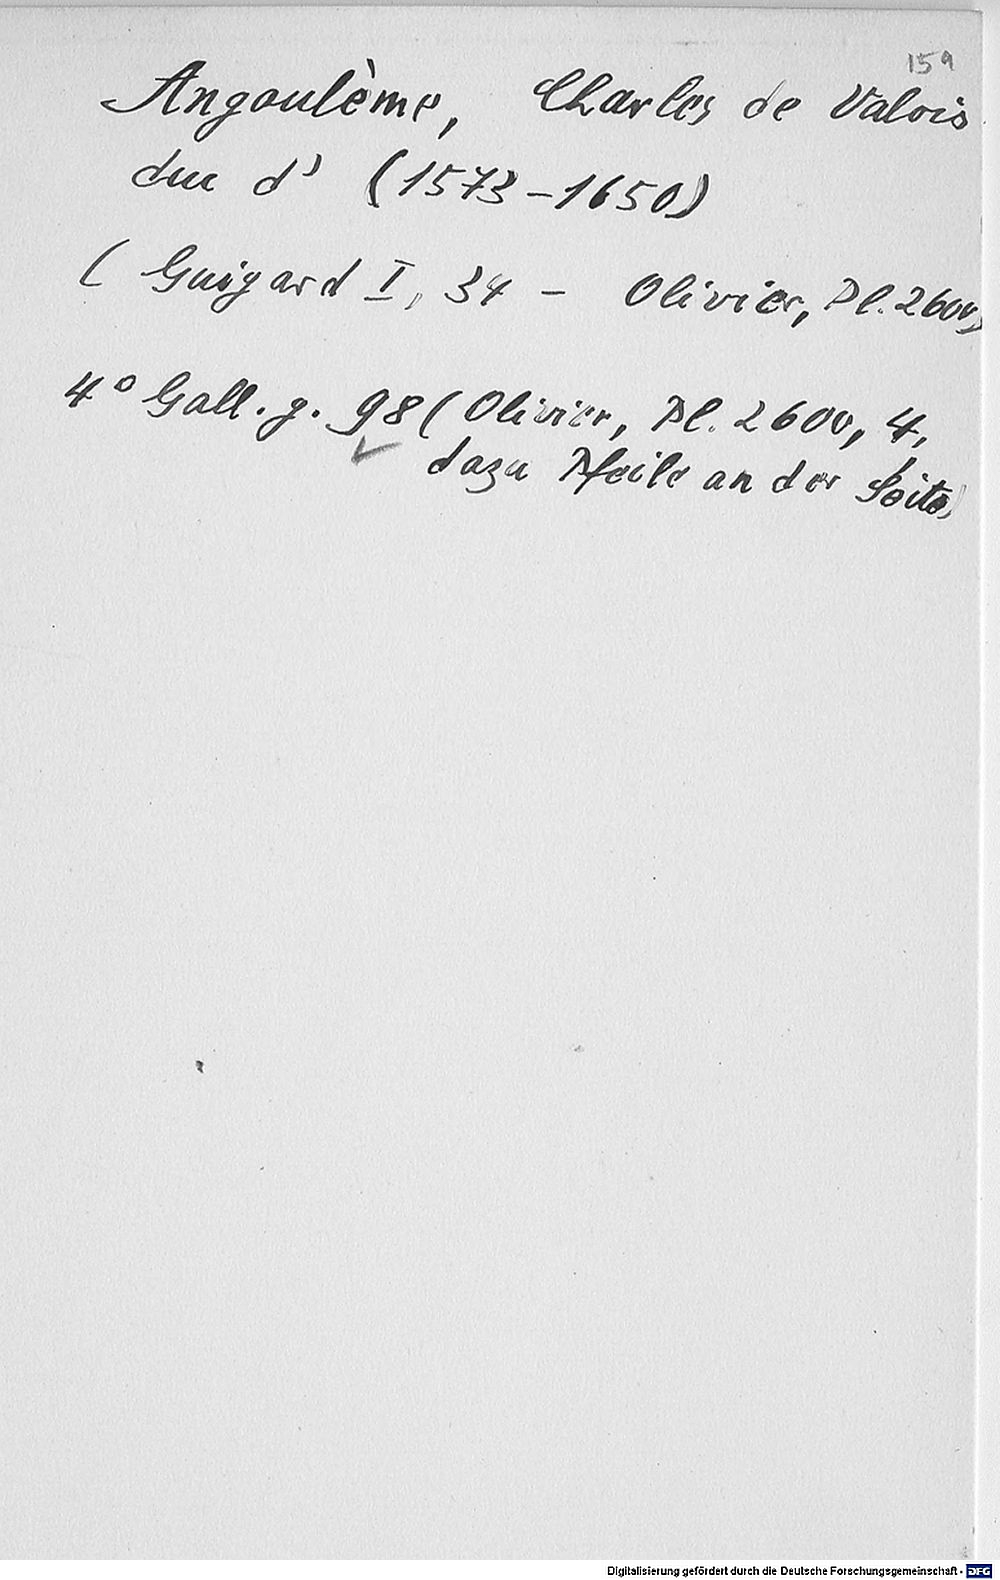 159
Angoulème, Charles de Valois
duc d' (1573-1650)
(Guigard I, 34 - Olivier, Pl. 2600)
4° Gall. g. 98 (Olivier, Pl. 2600, 4,
dazu Pfeile an der Seite)
Digitalisierung gefördert durch die Deutsche Forschungsgemeinschaft - DFG